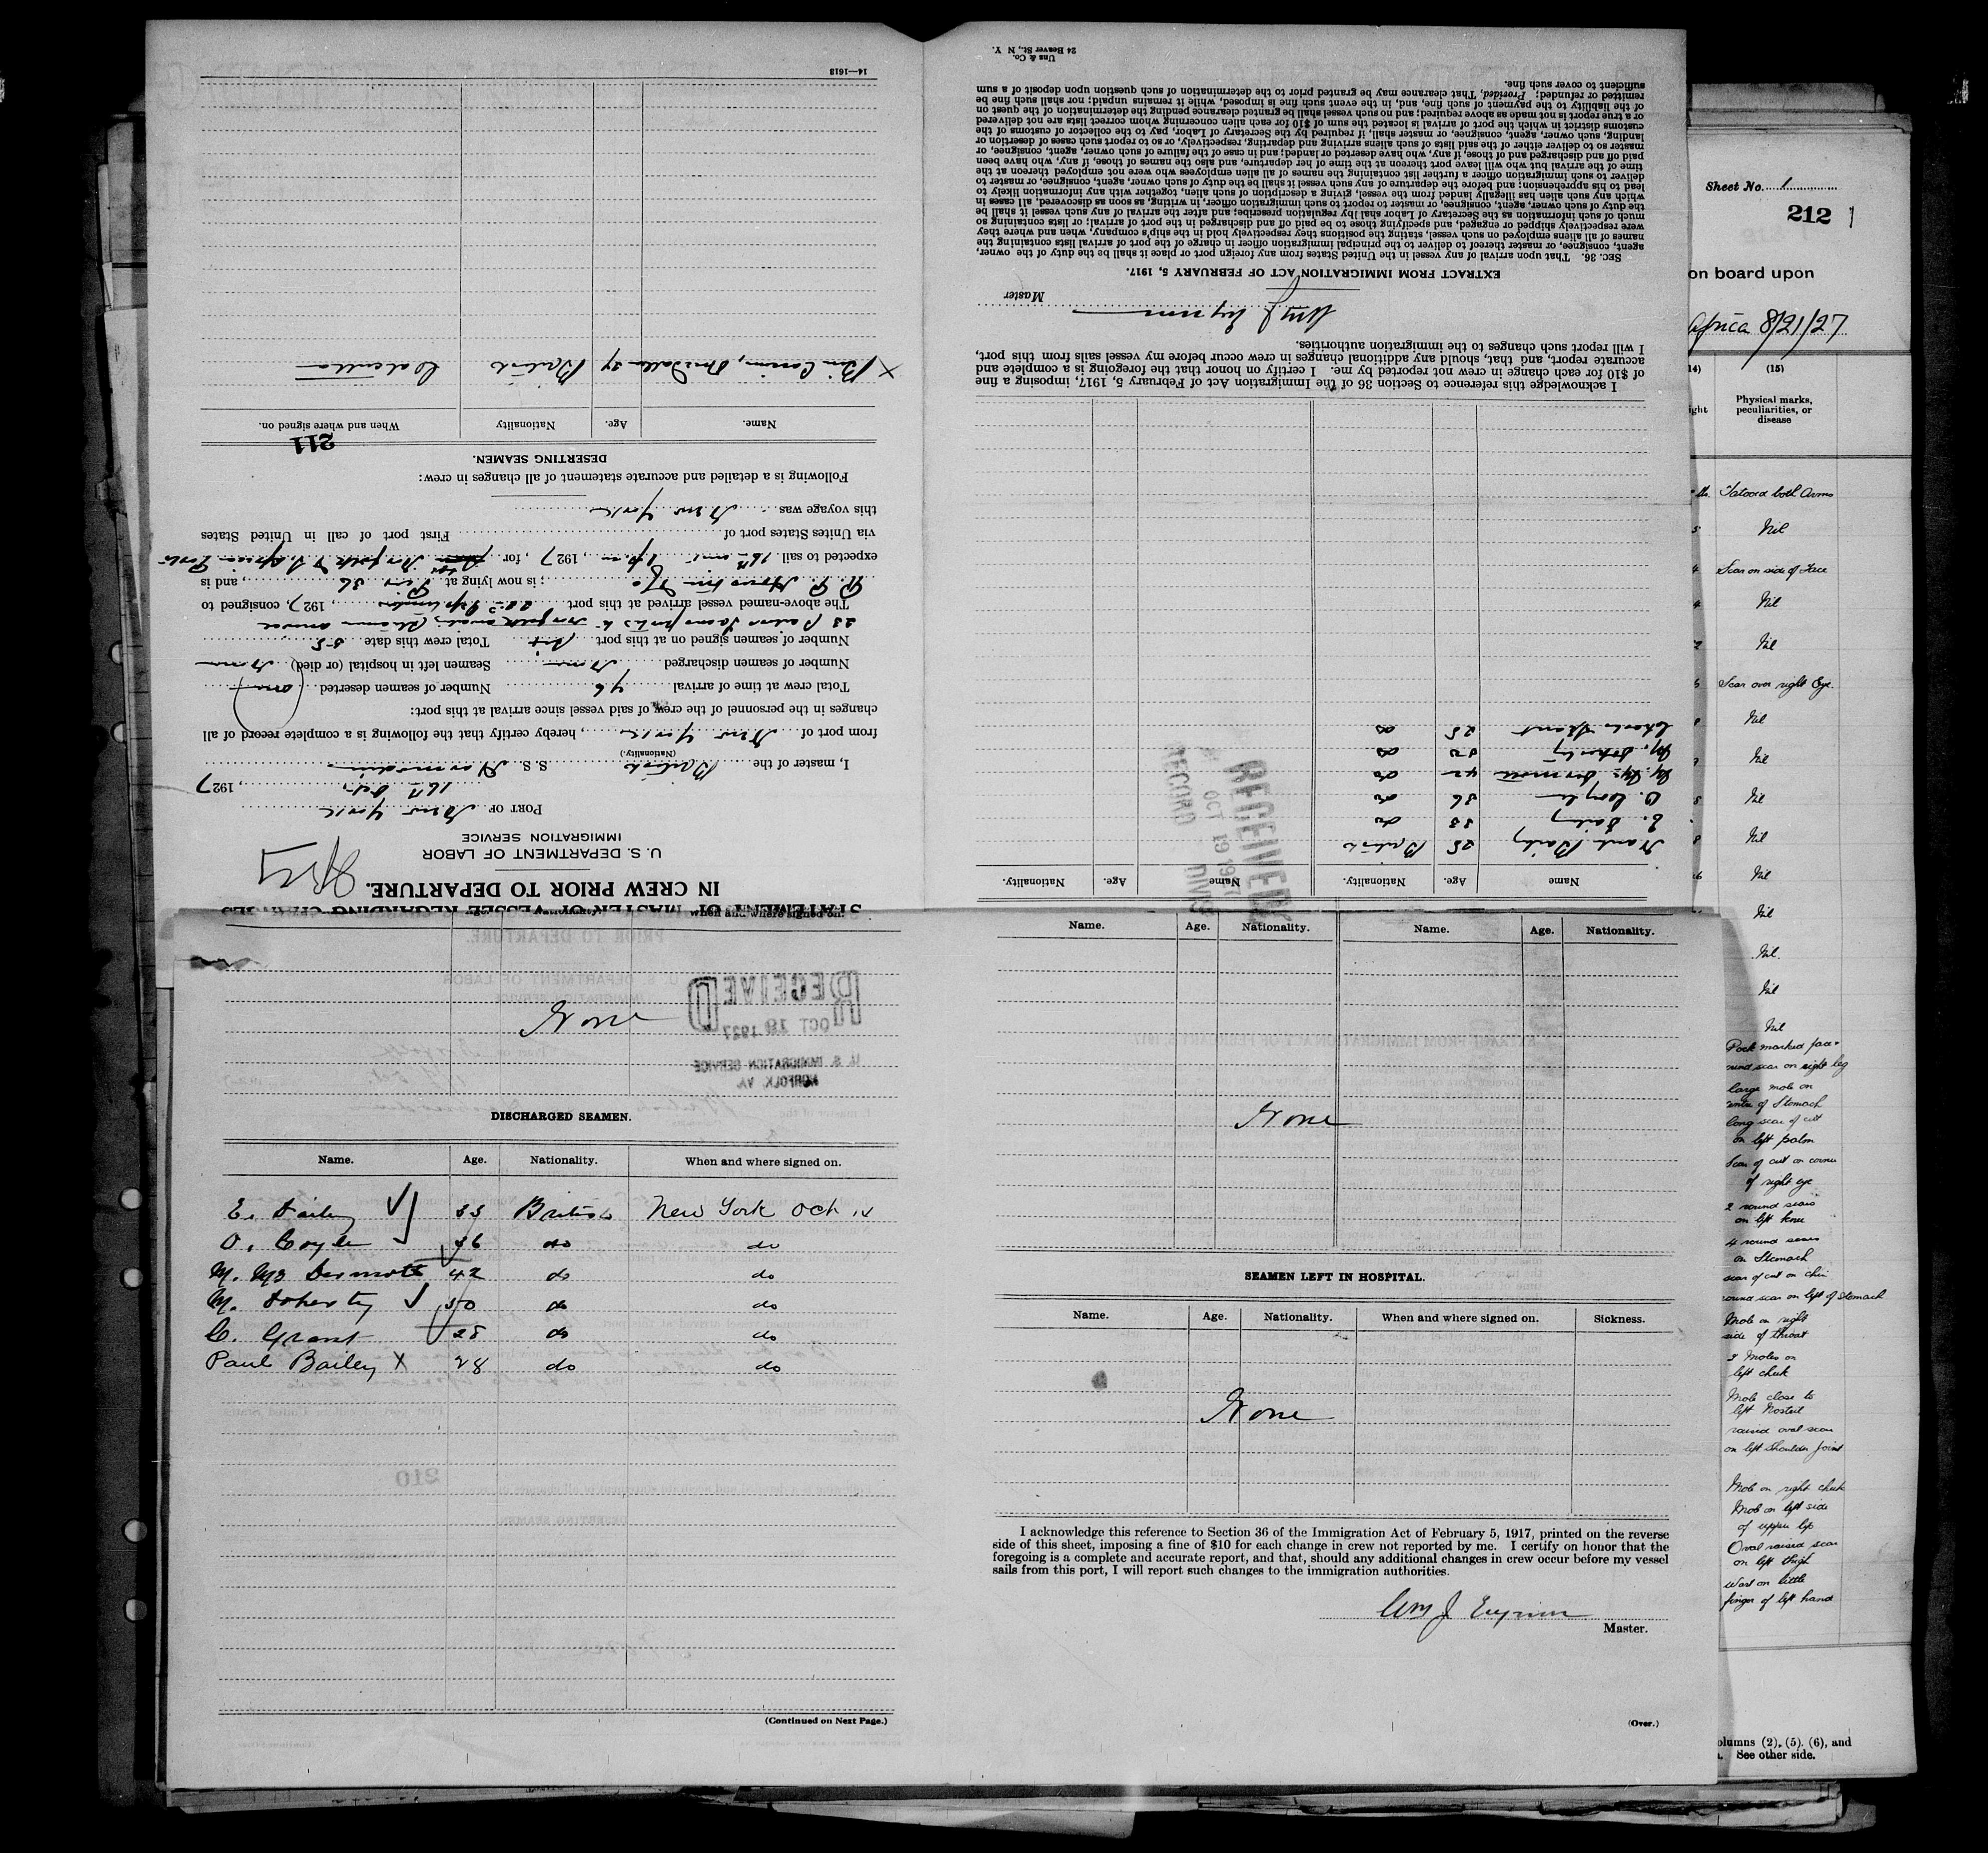 STATEMENT OF MASTER OF VESSEL REGARDING CHANGES
IN CREW PRIOR TO DEPARTURE.
U. S. DEPARTMENT OF LABOR
IMMIGRATION SERVICE
PORT OF New York
16th Oct, 1927
I, master of the British S. S.
(Nationality.)
from port of New York, hereby certify that the following is a complete record of all
changes in the personnel of the crew of said vessel since arrival at this port:
Total crew at time of arrival 46 Number of seamen deserted (one)
Number of seamen discharged None Seamen left in hospital (or died) None
Number of seamen signed on at this port Total crew this date 55
The above-named vessel arrived at this port, 1927, consigned to
; is now lying at Pier 36, and is
expected to sail 16th, 1927, for Norfolk & S. African Ports
via Unites States port of First port of call in United States
this voyage was New York
Following is a detailed and accurate statement of all changes in crew:
DESERTING SEAMEN.
211
Name. Age. Nationality. When and where signed on.
X British Calcutta
14—1613
Name Age. Nationality. Name Age. Nationality.
Paul Bailey 28 British
E. Dailey 33 do
O. Coyle 36 do
M. McDermott 42 do
M. Doherty 50 do
Charles Grant 28 do
RECEIVED
OCT 19 1927
RECORD DIVIS
I acknowledge this reference to Section 36 of the Immigration Act of February 5, 1917, imposing a fine
of $10 for each change in crew not reported by me. I certify on honor that the foregoing is a complete and
accurate report, and that, should any additional changes in crew occur before my vessel sails from this port,
I will report such changes to the immigration authorities.
Wm J
Master
EXTRACT FROM IMMIGRATION ACT OF FEBRUARY 5, 1917.
SEC. 36. That upon arrival of any vessel in the United States from any foreign port or place it shall be the duty of the owner,
agent, consignee, or master thereof to deliver to the principal immigration officer in charge of the port of arrival lists containing the
names of all aliens employed on such vessel, stating the positions they respectively hold in the ship's company, when and where they
were respectively shipped or engaged, and specifying those to be paid off and discharged in the port of arrival; or lists containing so
much of such information as the Secretary of Labor shall by regulation prescribe; and after the arrival of any such vessel it shall be
the duty of such owner, agent, consignee, or master to report to such immigration officer, in writing, as soon as discovered, all cases in
which any such alien has illegally landed from the vessel, giving a description of such alien, together with any information likely to
lead to his apprehension; and before the departure of any such vessel it shall be the duty of such owner, agent, consignee, or master to
deliver to such immigration officer a further list containing the names of all alien employees who were not employed thereon at the
time of the arrival but who will leave port thereon at the time of her departure, and also the names of those, if any, who have been
paid off and discharged and of those, if any, who have deserted or landed; and in case of the failure of such owner, agent, consignee, or
master so to deliver either of the said lists of such aliens arriving and departing, respectively, or so to report such cases of desertion or
landing, such owner, agent, consignee, or master shall, if required by the Secretary of Labor, pay to the collector of customs of the
customs district in which the port of arrival is located the sum of $10 for each alien concerning whom correct lists are not delivered
or a true report is not made as above required; and no such vessel shall be granted clearance pending the determination of the quest on
of the liability to the payment of such fine, and, in the event such fine is imposed, while it remains unpaid; nor shall such fine be
remitted or refunded; Provided, That clearance may be granted prior to the determination of such question upon deposit of a sum
sufficient to cover such fine.
Uns & Co.
24 Beaver St., N Y.
when and where signed on.
None
RECEIVED
OCT 18 1927
U. S. IMMIGRATION SERVICE
NORFOLK VA.
DISCHARGED SEAMEN.
Name. Age. Nationality. When and where signed on.
E. Dailey 33 British New York Oct 15
O. Coyle 36 do do
M. McDermott 42 do do
M. Doherty 50 do do
C. Grant 28 do do
Paul Bailey X 28 do do
210
(Continued on Next Page.)
Name. Age. Nationality. Name. Age. Nationality.
None
SEAMEN LEFT IN HOSPITAL.
Name. Age. Nationality. When and where signed on. Sickness.
None
I acknowledge this reference to Section 36 of the Immigration Act of February 5, 1917, printed on the reverse
side of this sheet, imposing a fine of $10 for each change in crew not reported by me. I certify on honor that the
foregoing is a complete and accurate report, and that, should any additional changes in crew occur before my vessel
sails from this port, I will report such changes to the immigration authorities.
Wm J
Master.
(Over.)
Sheet No. 1
212
on board upon
Africa 8/21/27
(15)
Physical marks,
peculiarities, or
disease
Tatooed both Arms
Nil
Scar on side of Face
Nil
Nil
Scar over right Eye.
Nil
Nil
Nil
Nil
Nil
Nil
Nil.
Nil
Nil
Pock marked face
round scar on right leg
large mole on
centre of Stomach
long scar of cut
on left palm
Scar of cut on corner
of right eye
2 round scars
on left knee
4 round scars
on Stomach
scar of cut on chin
round scar on left of stomach
Mole on right
side of throat
3 Moles on
left cheek
Mole close to
left Nostril
raised oval scar
on left shoulder joint
Mole on right cheek
Mole on left side
of upper lip
Oval raised scar
on left thigh
Wart on little
finger of left hand
olumns (2), (5), (6), and
See other side.